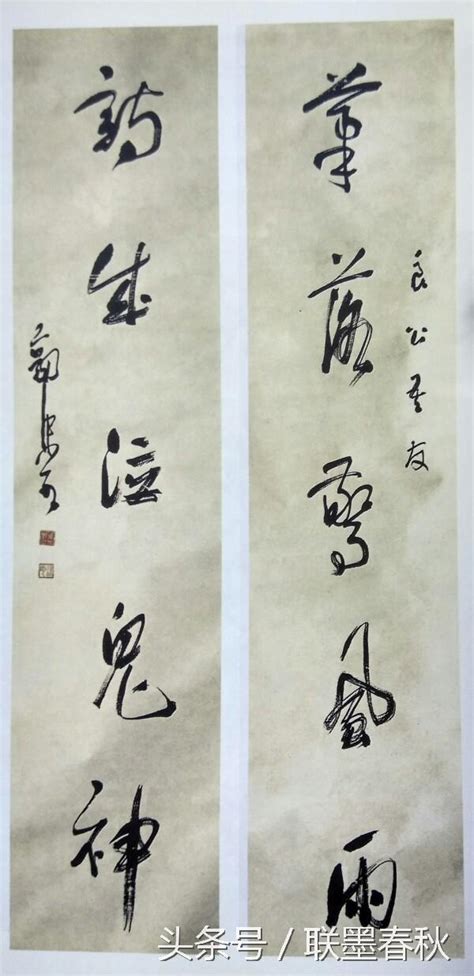 良公吾友
筆落驚風雨
詩成泣鬼神
头条号 / 联墨春秋